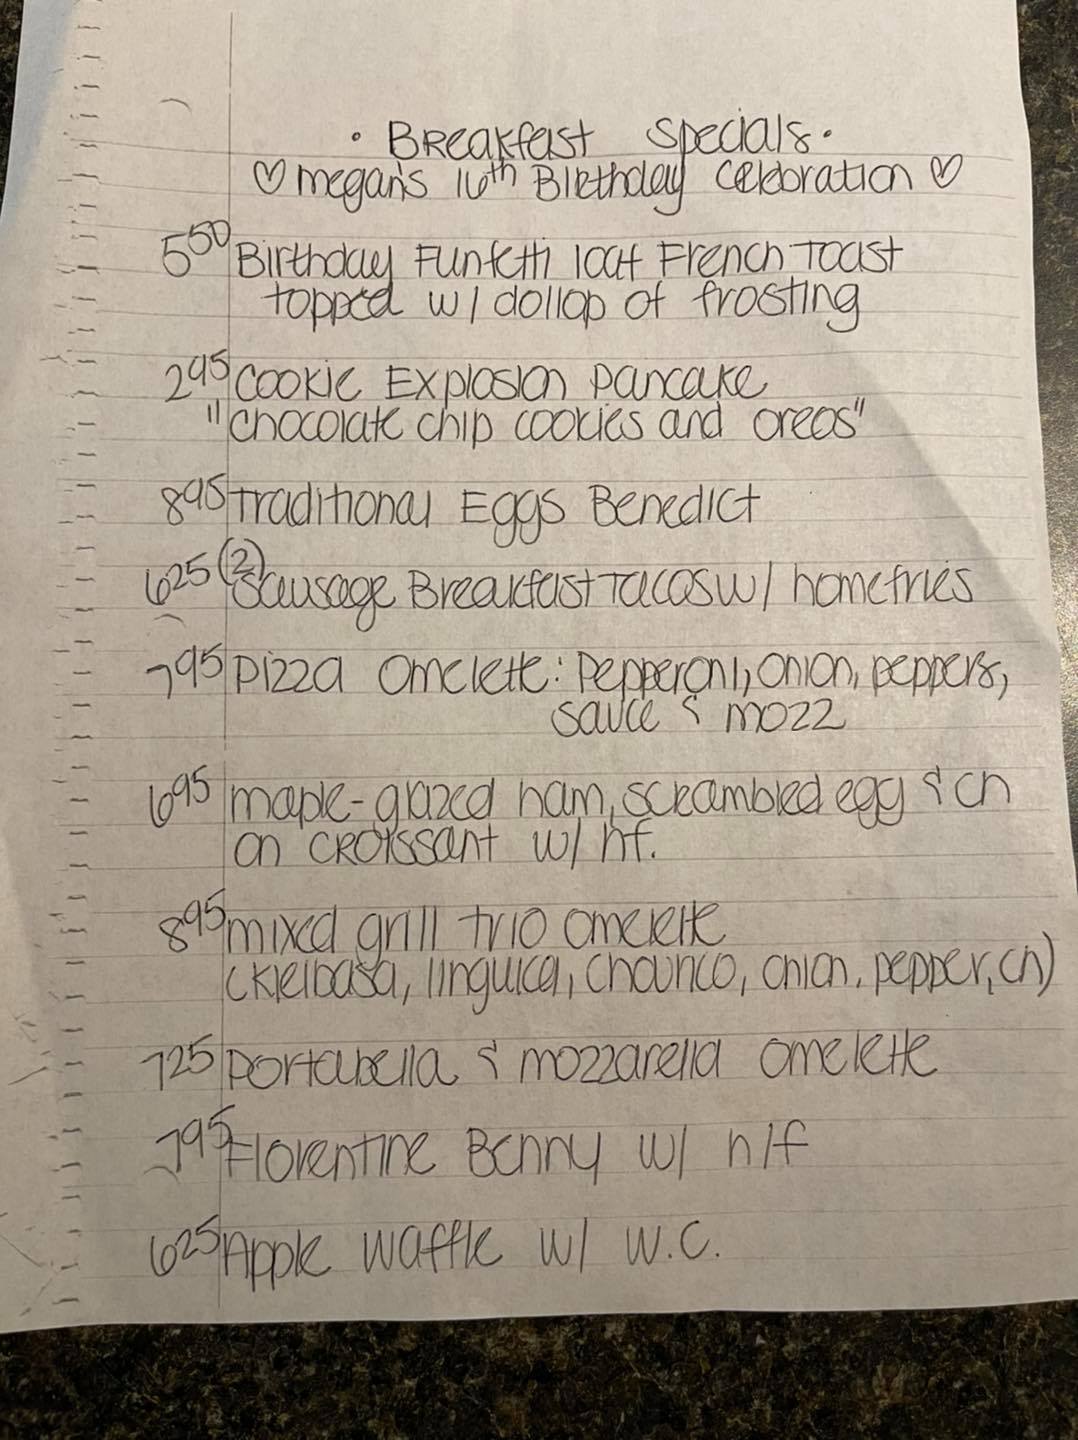 • Breakfast Specials •
♡ megan's 16th Birthday Celebration ♡
5 50 Birthday Funfetti loaf French Toast
topped w/ dollop of frosting
2 95 Cookie Explosion Pancake
"chocolate chip cookies and oreos"
8 95 Traditional Eggs Benedict
6 25 (2) Sausage Breakfast Tacos w/ homefries
7 95 Pizza Omelette: Pepperoni, onion, peppers,
sauce & mozz
6 95 maple-glazed ham, scrambled egg & ch
on croissant w/ hf.
8 95 mixed grill trio omelette
(kielbasa, linguica, chourico, onion, pepper, ch)
7 25 portabella & mozzarella omelette
7 95 Florentine Benny w/ h/f
6 25 Apple waffle w/ w.c.